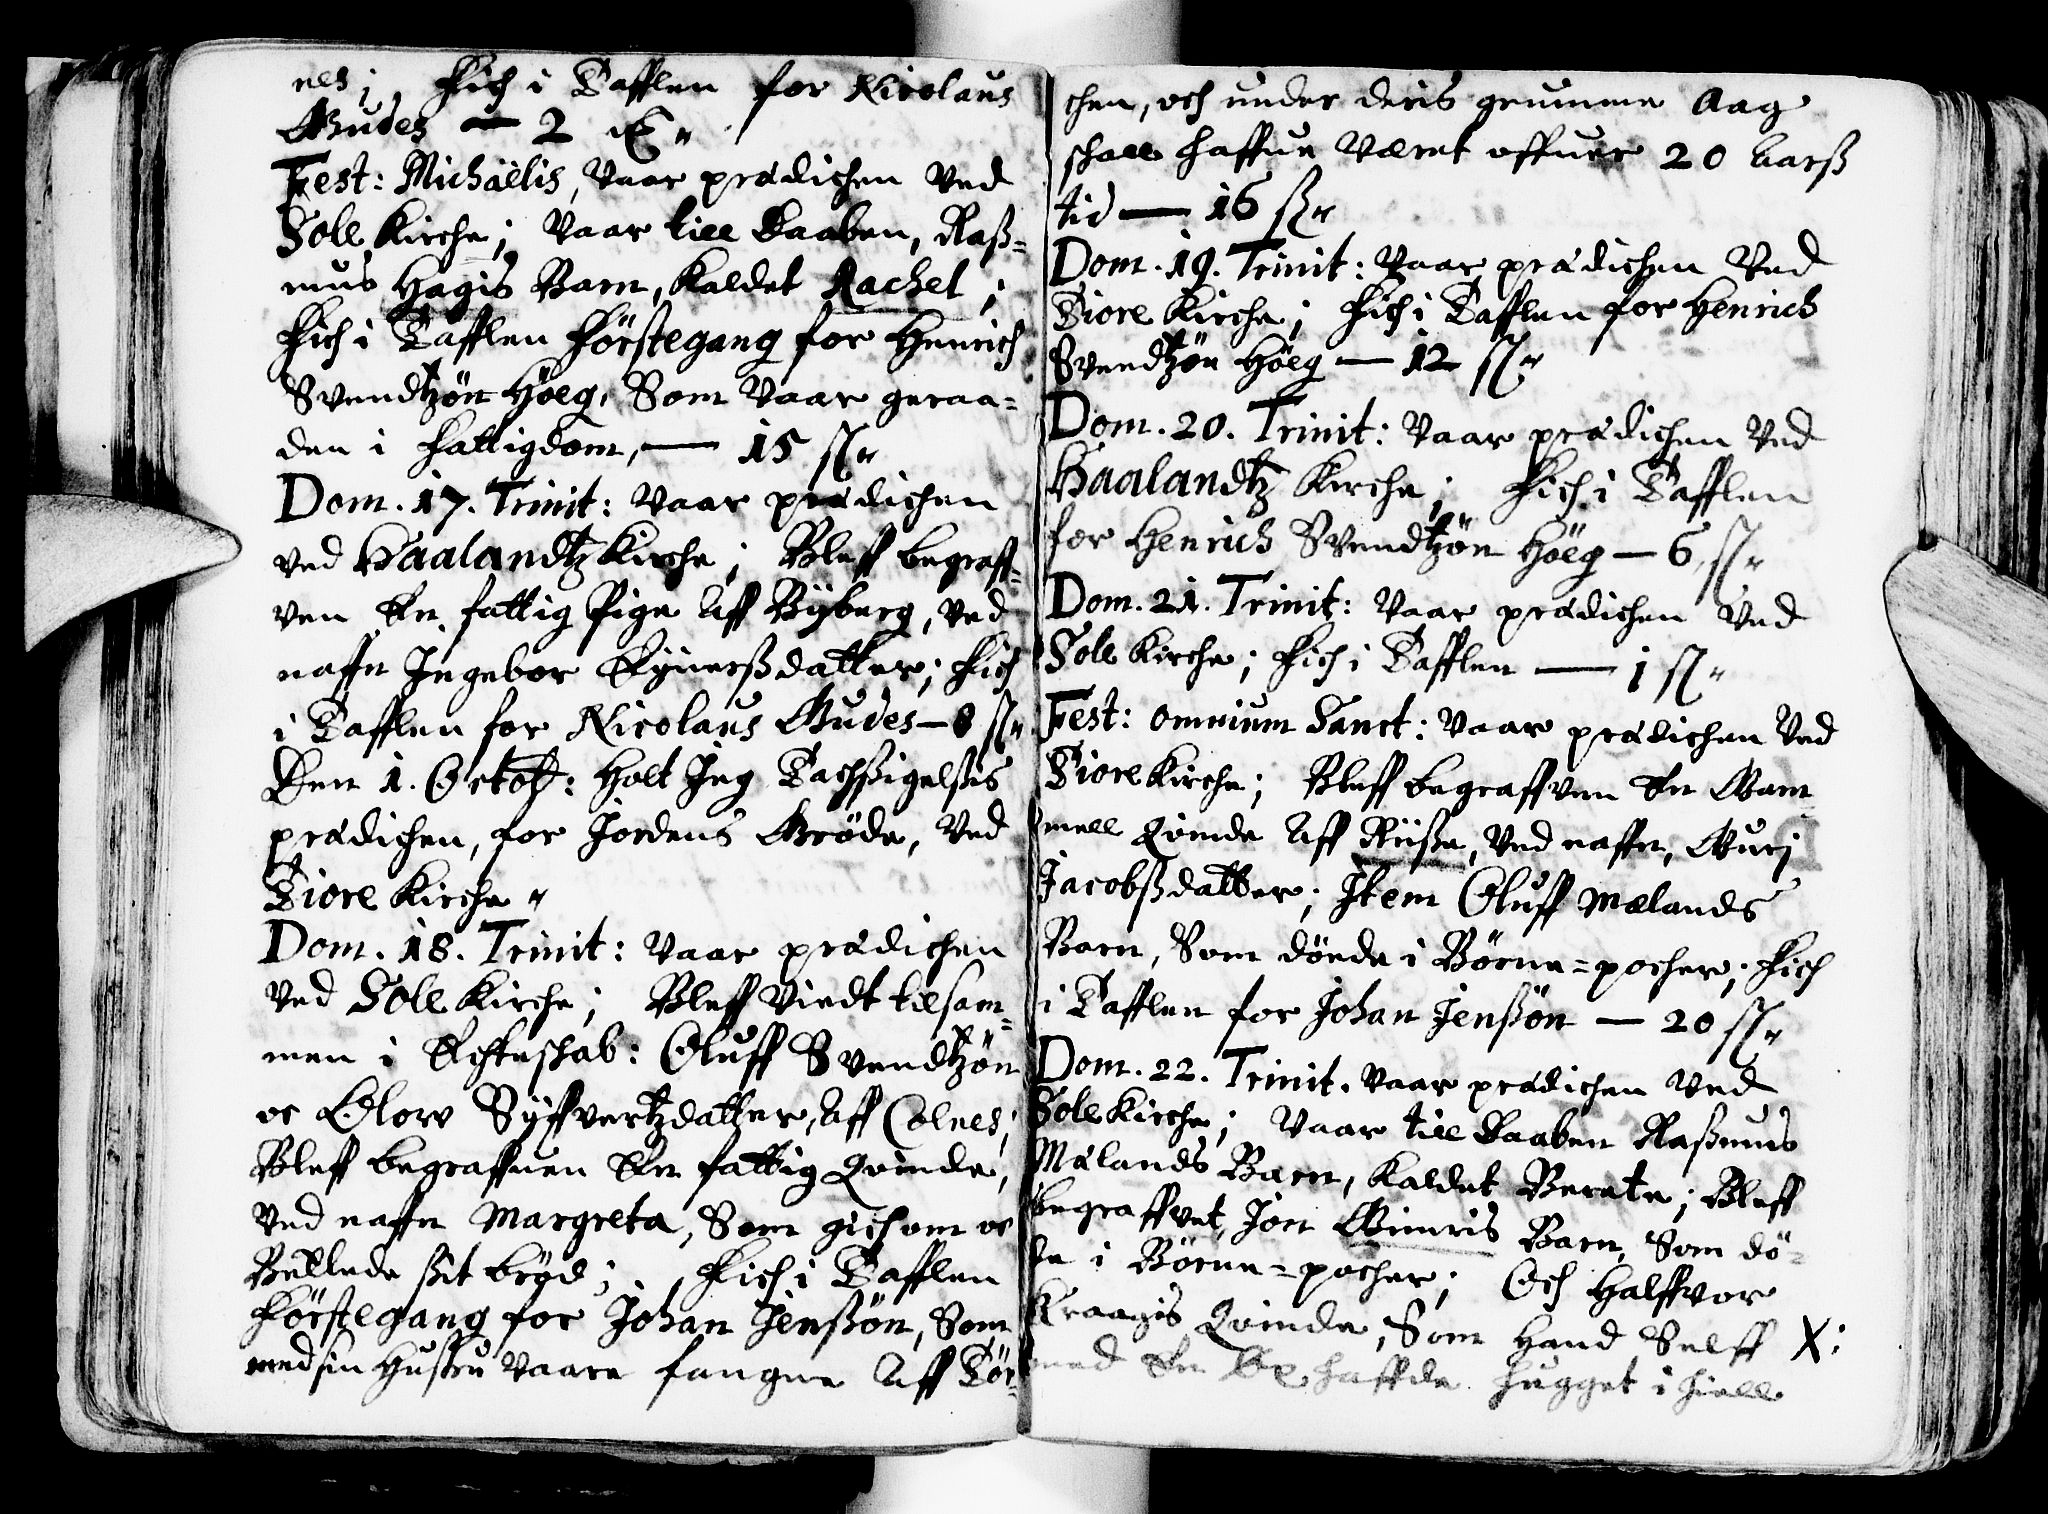 nes; Fich i Tafflen for Nicolaus
Gudes — 2
Fest: Michaëlis, Vaar prædichen Ved
Sole Kirche; Vaar till Daaben, Raß=
mus Hagis Barn, kaldet Rachel;
Fich i Tafflen Förstegang for Henrich
Svendtzön Höeg, Som Vaar geraa=
den i Fattigdom, — 15 ß
Dom. 17. Trinit: Vaar prædichen
ved Haalandtz Kirche; Bleff begraff=
ven En fattig Pige Aff Ryberg, Ved
naffn Ingebor Eÿverßdatter; Fich
i Tafflen for Nicolaus Gudes — 8 ß
Den 1. Octob: Holt Jeg Tachsigelsis
prædichen, for Jordens Gröde, Ved
Tiore Kirche
Dom. 18. Trinit: Vaar prædichen
Ved Sole Kirche; Bleff Viedt tilsam=
men i Ecteskab: Oluff Svendtzön
oc Olow Syffvertzdatter, Aff Colnes;
Bleff begraffuen En fattig Qvinde,
Ved naffn Margreta, Som gich om oc
Betlede sit bröd; Fich i Tafflen
Förstegang for Johan Jenßön, Som
med sin Hustru Vaare fangne Aff Tör=
chen, och under deris grumme Aag
schall haffue Været offuer 20 Aarß
tid — 16 ß
Dom. 19. Trinit: Vaar prædichen Ved
Tiore Kirche; Fich i Tafflen for Henrich
Svendtzön Höeg — 12 ß
Dom. 20. Trinit: Vaar prædichen Ved
Haalandtz Kirche; Fich i Tafflen
for Henrich Svendtzön Höeg — 6 ß
Dom. 21. Trinit: Vaar prædichen Ved
Sole Kirche; Fich i Tafflen — 1 ß
Fest: omnium Sanct: Vaar prædichen Ved
Tiore Kirche; Bleff begraffven En Gam=
mell Qvinde Aff Riiße, Ved naffn, Guri
Jacobßdatter; Item Oluff Mælands
Barn, Som döede i Börne=pocher; Fich
i Tafflen for Johan Jenßön — 20 ß
Dom. 22. Trinit. Vaar prædichen Ved
Sole Kirche; Vaar till Daaben Raßmus
Mælands Barn, kaldet Berete; Bleff
begraffvet, Jon Gimris Barn, Som dö=
de i Börne=pocher; Och Halffvor
Kraagis Qvinde, Som Hand Selff X:
med En Øx haffde hugget i hiell